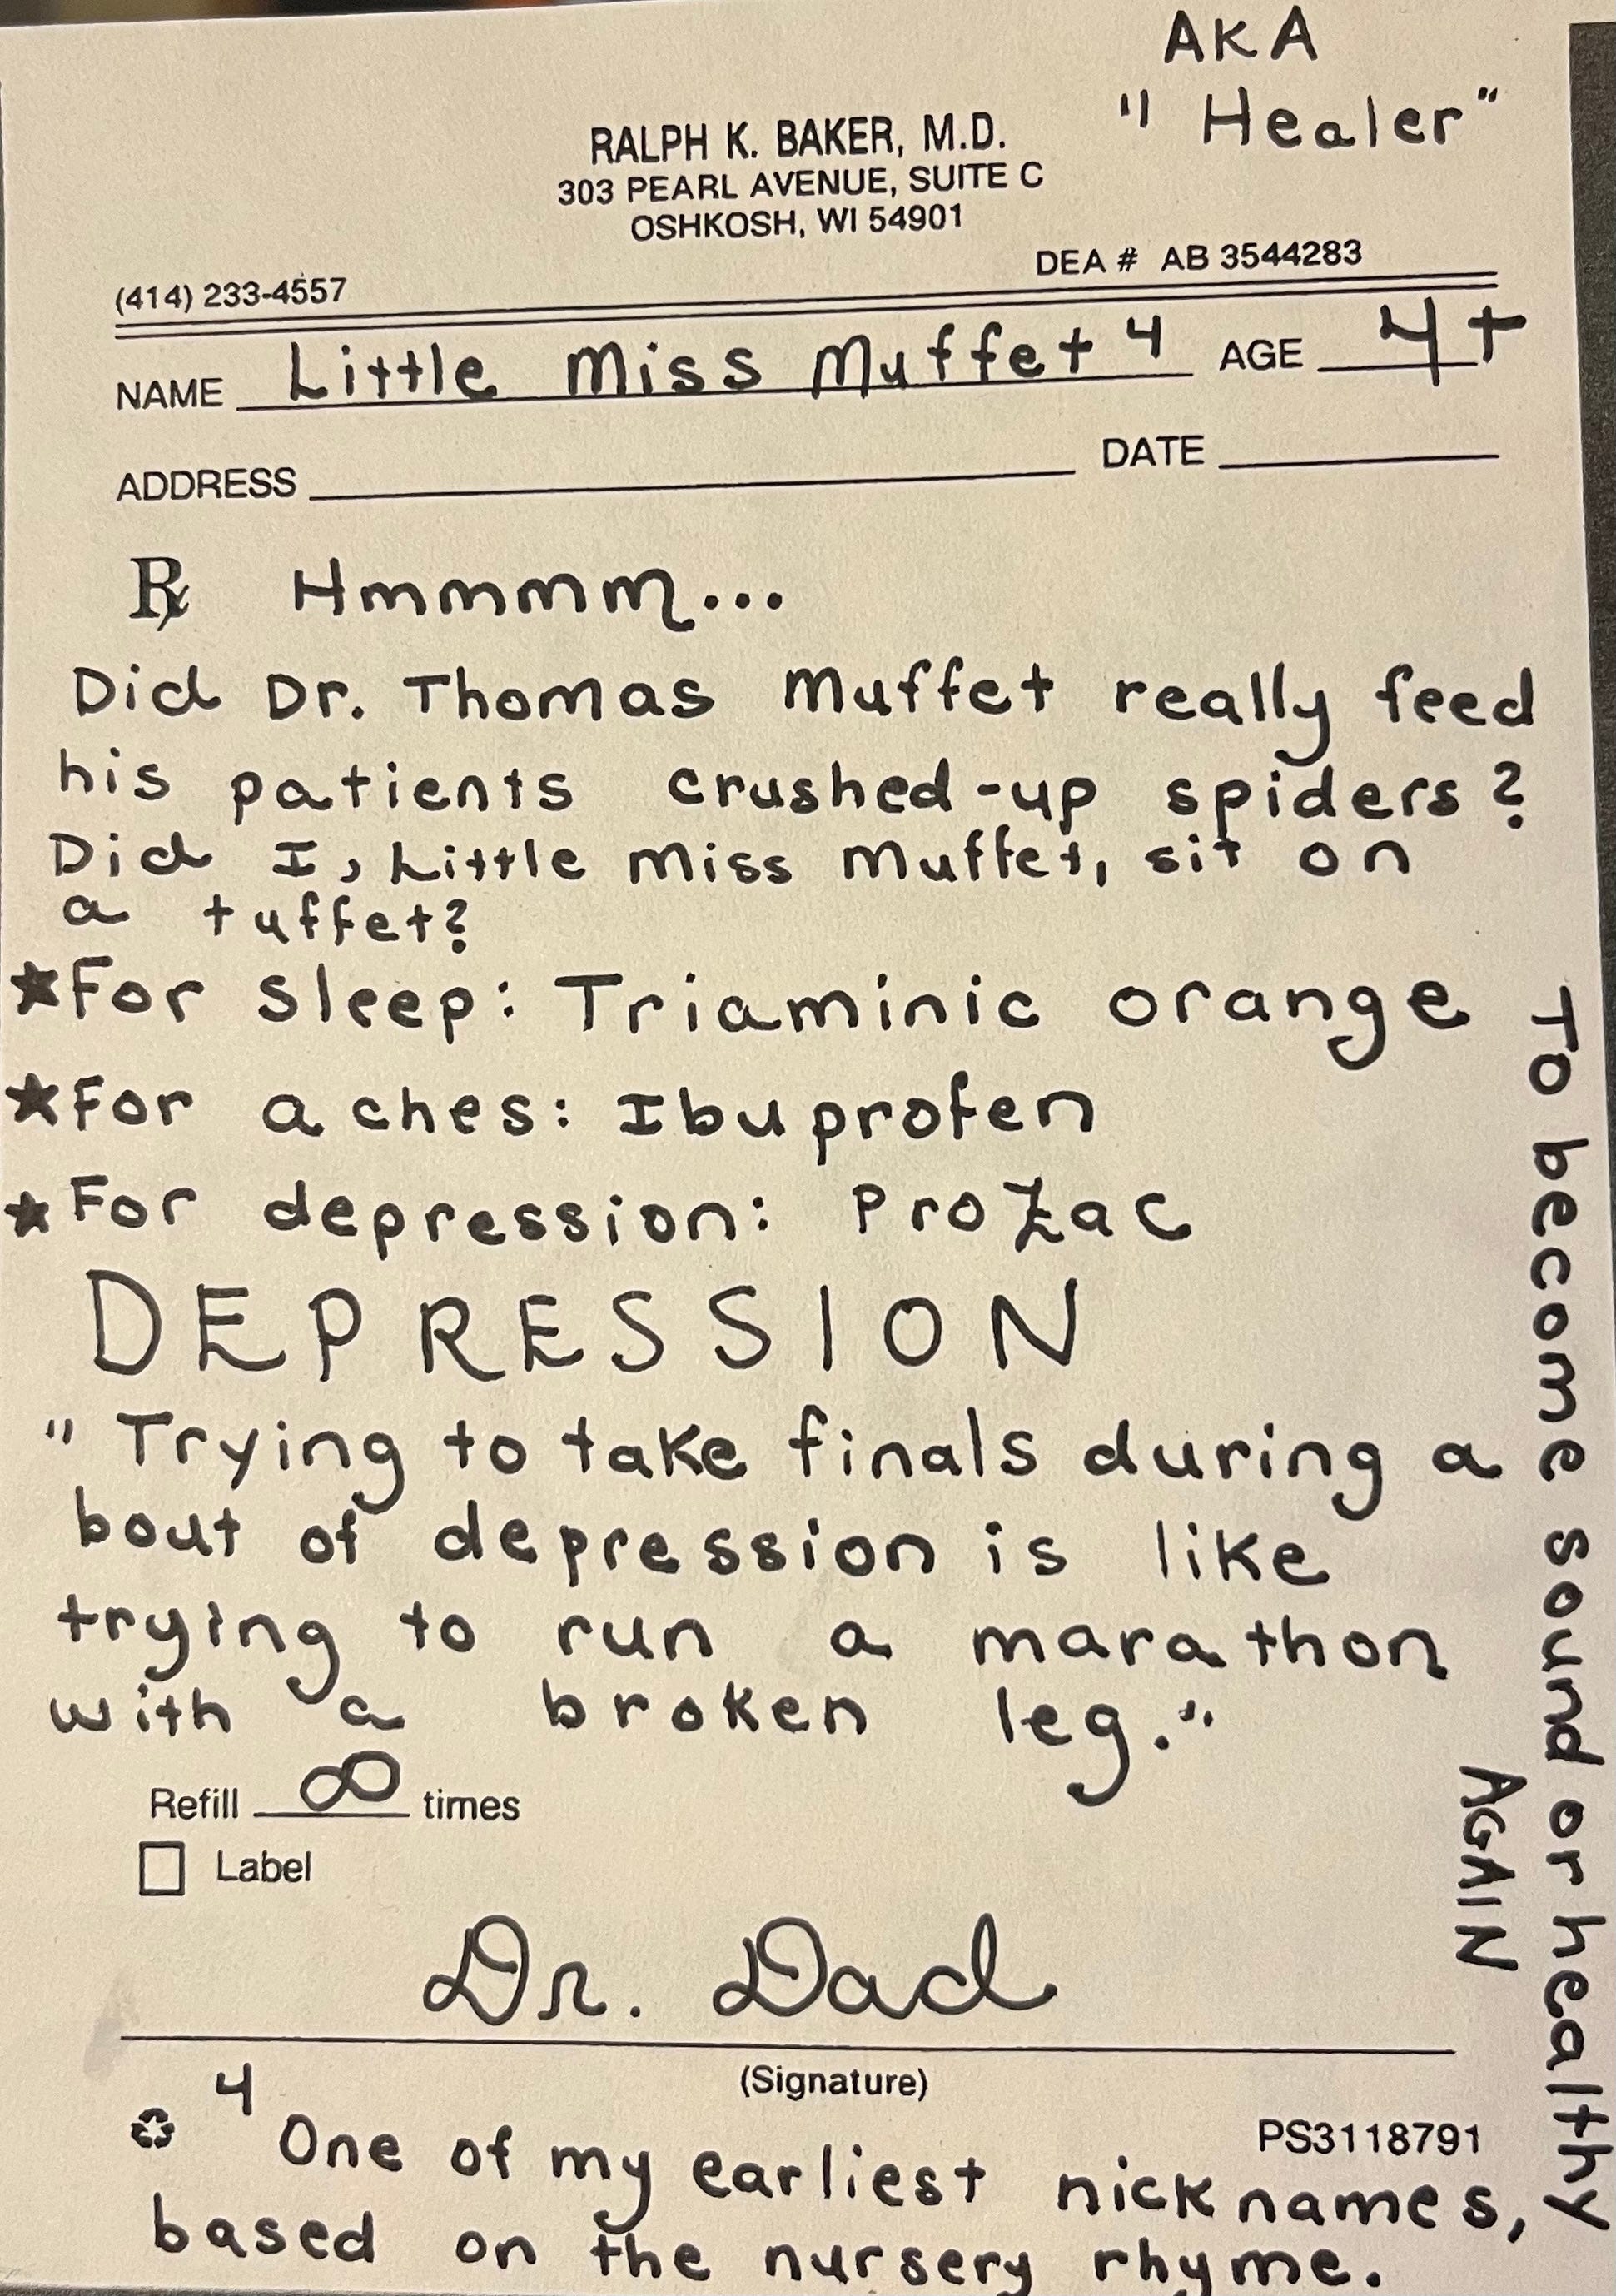 AKA
"Healer"
RALPH K. BAKER, M.D.
303 PEARL AVENUE, SUITE C
OSHKOSH, WI 54901
DEA # AB 3544283
(414) 233-4557
NAME Little Miss Muffet 4 AGE 4+
ADDRESS DATE
Rx Hmmmm...
Did Dr. Thomas Muffet really feed
his patients crushed-up spiders?
Did I, Little Miss Muffet, sit on
a tuffet?
★For sleep: Triaminic orange
★For aches: Ibuprofen
★For depression: Prozac
DEPRESSION
"Trying to take finals during a
bout of depression is like
trying to run a marathon
with a broken leg."
Refill ∞ times
Label
Dr. Dad
(Signature)
PS3118791
4 One of my earliest nicknames,
based on the nursery rhyme.
To become sound or healthy
AGAIN